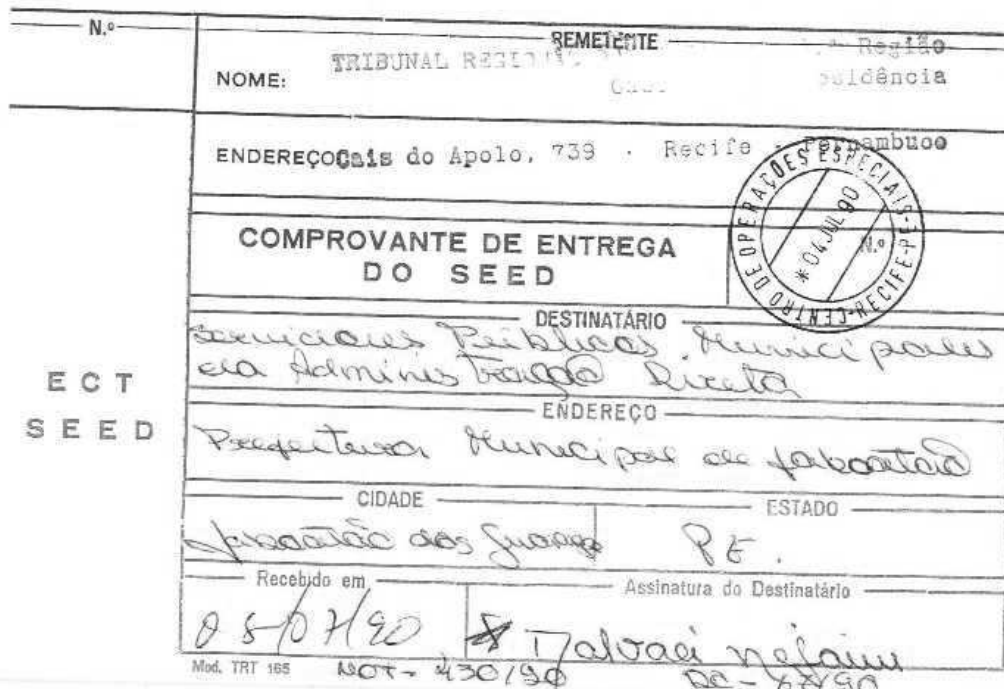 N.º
REMETENTE
NOME: TRIBUNAL REGIONAL Região
Presidência
ENDEREÇO Cais do Apolo, 739 . Recife - Pernambuco
CENTRO DE OPERAÇÕES ESPECIAIS-RECIFE-PE
*04 JUL 90
COMPROVANTE DE ENTREGA
DO SEED
N.º
ECT
SEED
DESTINATÁRIO
Servidores Públicos Municipales
da Administração Direta
ENDEREÇO
Prefeitura Municipal de Jaboatão
CIDADE
Jaboatão dos
ESTADO
PE.
Recebido em
05/07/90
Assinatura do Destinatário
Mod. TRT 165
NOT- 430/90
DC-